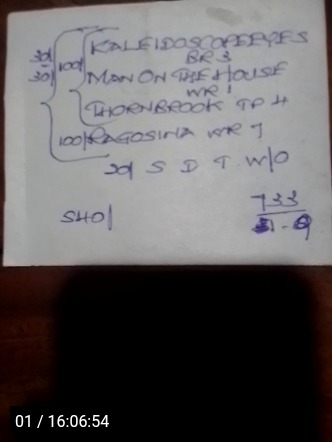 KALEIDOSCOPEEYES
BR 3
30/
30/
100/
MAN ON THE HOUSE
WR 1
THORNBROOK TP 4
100/ RAGOSINA WR 7
20/ S D T W/O
S40/
733
01 / 16:06:54